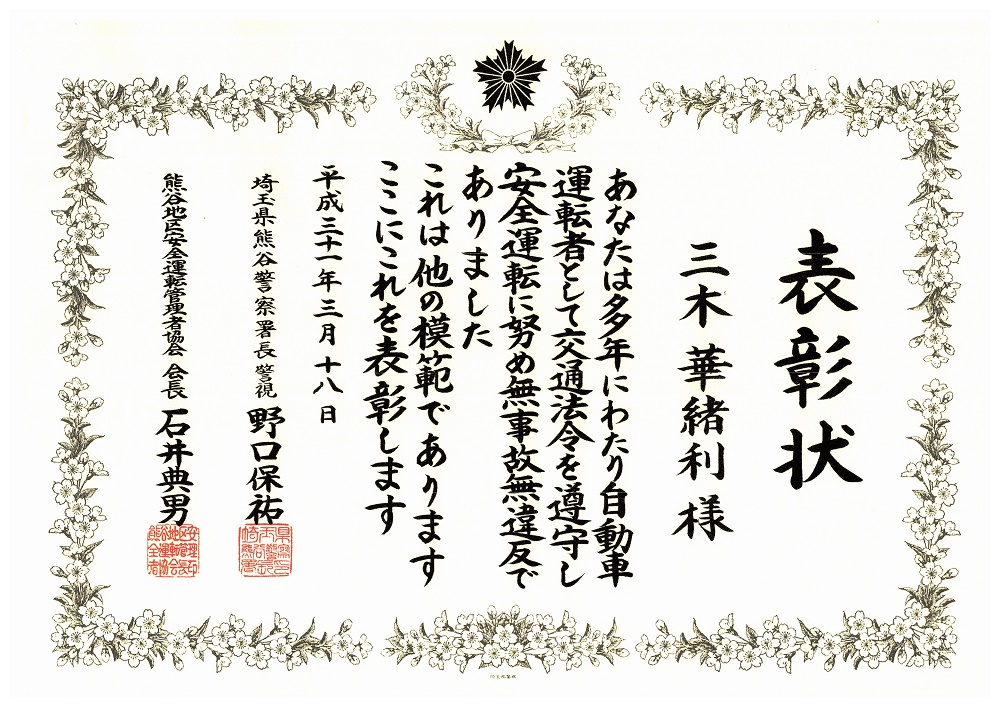 表彰状
三木 華緒利 様
あなたは多年にわたり自動車
運転者として交通法令を遵守し
安全運転に努め無事故無違反で
ありました
これは他の模範であります
ここにこれを表彰します
平成三十一年三月十八日
埼玉県熊谷警察署長 警視 野口保祐
熊谷地区安全運転管理者協会 会長 石井典男